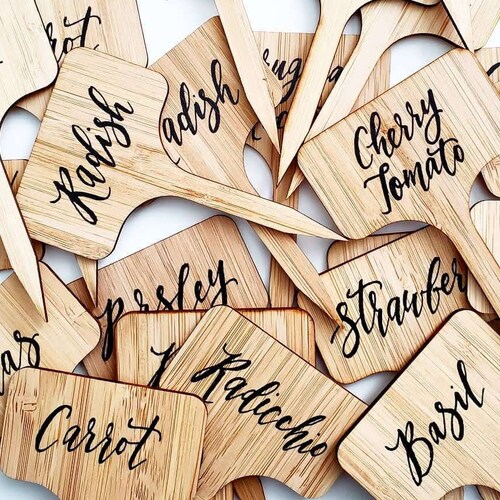 rot
Radish
adish
rug
Cherry
Tomato
Parsley
Strawber
as
Radicchio
Carrot
Basil